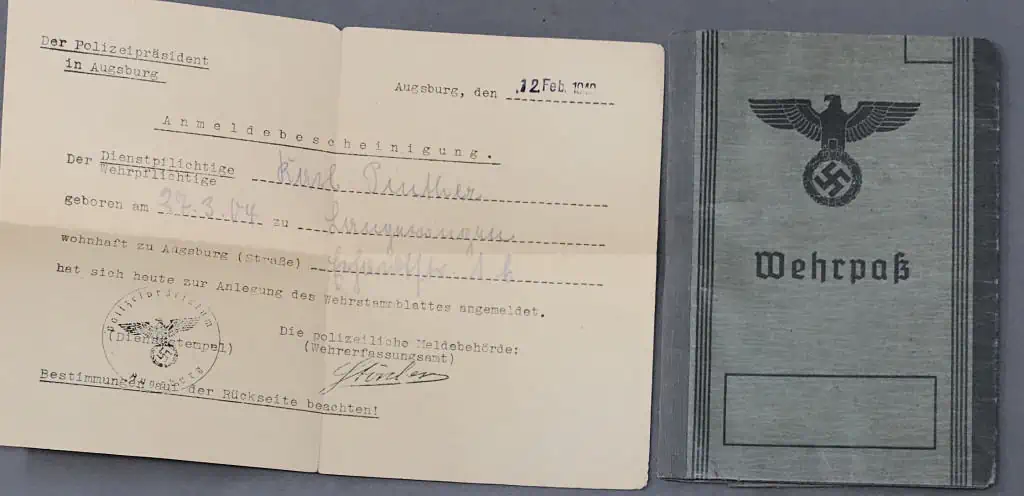 Der Polizeipräsident
in Augsburg
Augsburg, den 12. Feb. 1940
Anmeldebescheinigung.
Der Dienstpflichtige
Wehrpflichtige
Karl
geboren am 27.3.04 zu
wohnhaft zu Augsburg (Straße)
hat sich heute zur Anlegung des Wehrstammblattes angemeldet.
Polizeipräsidium
(Dienststempel)
Augsburg
Die polizeiliche Meldebehörde:
(Wehrerfassungsamt)
Bestimmungen auf der Rückseite beachten!
Wehrpaß